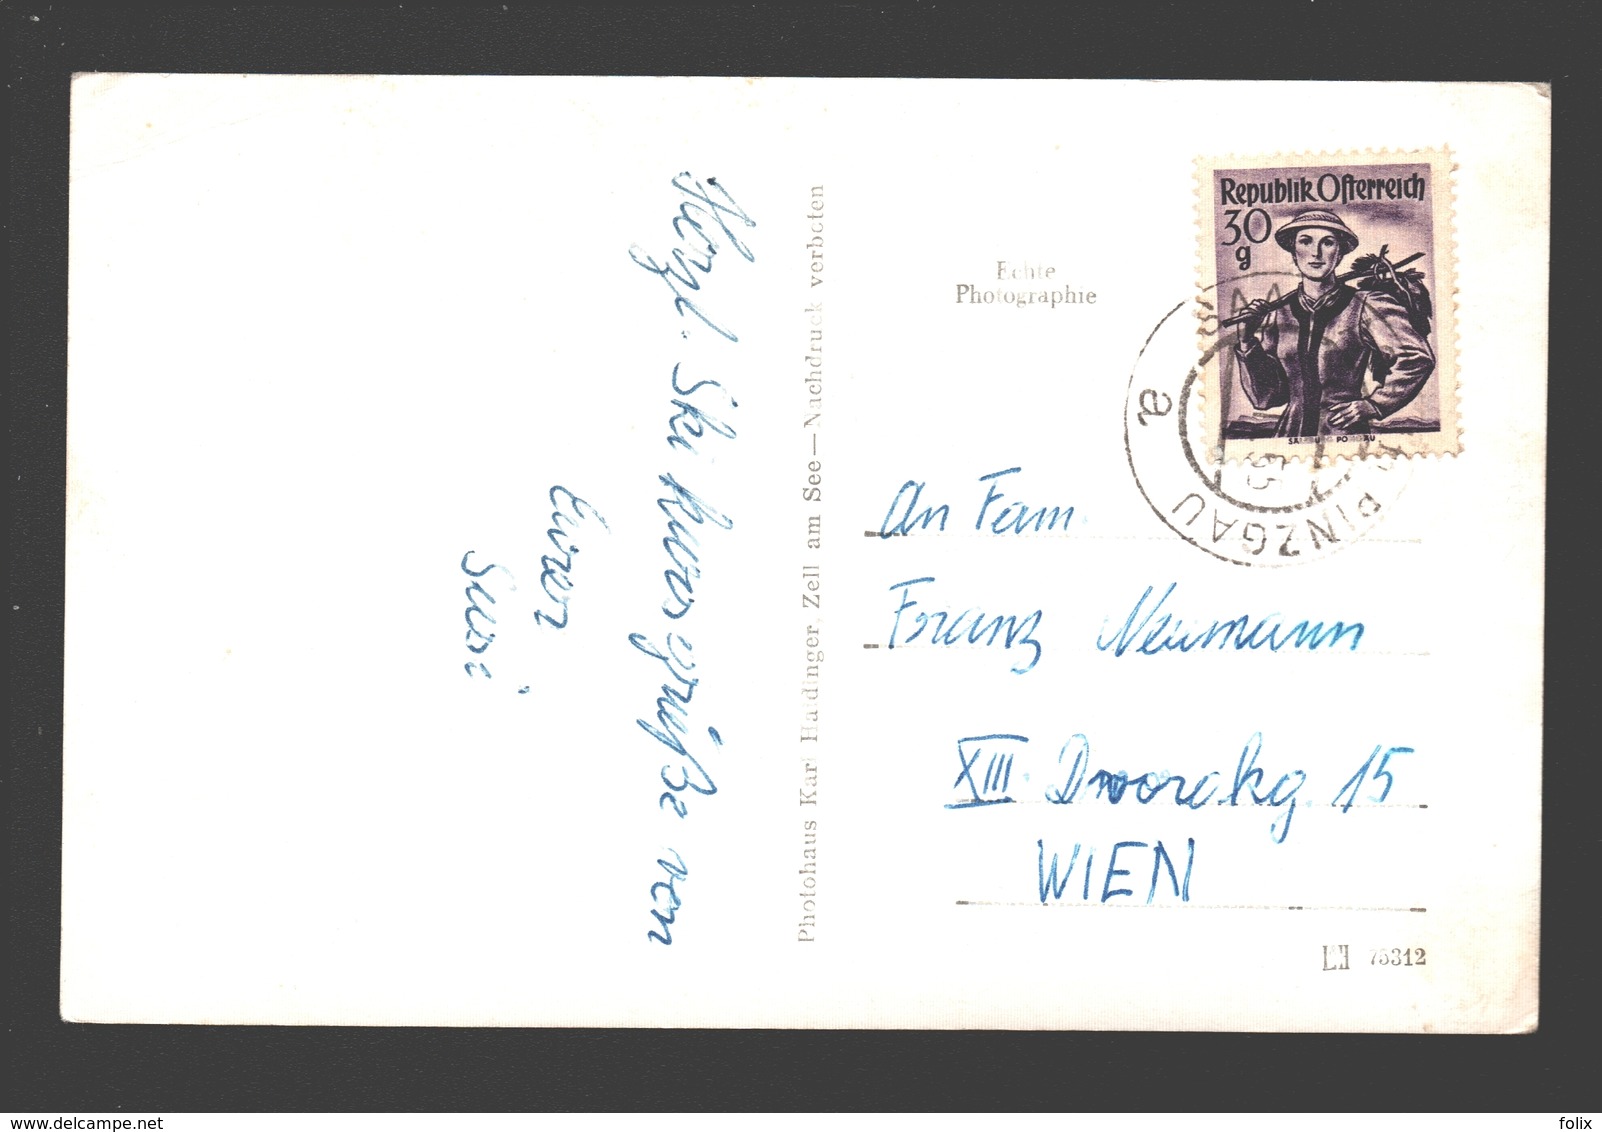 Herzl. Ski Kursgrüße von
Eurer
Susi
Photohaus Karl Haidinger, Zell am See—Nachdruck verboten
Echte
Photographie
Republik Österreich
30
g
SALZBURG PONGAU
SAA
PINZGAU
a
55
An Fam.
Franz Neumann
XIII. Dvorakg. 15
WIEN
75312
delcampe.net
folix